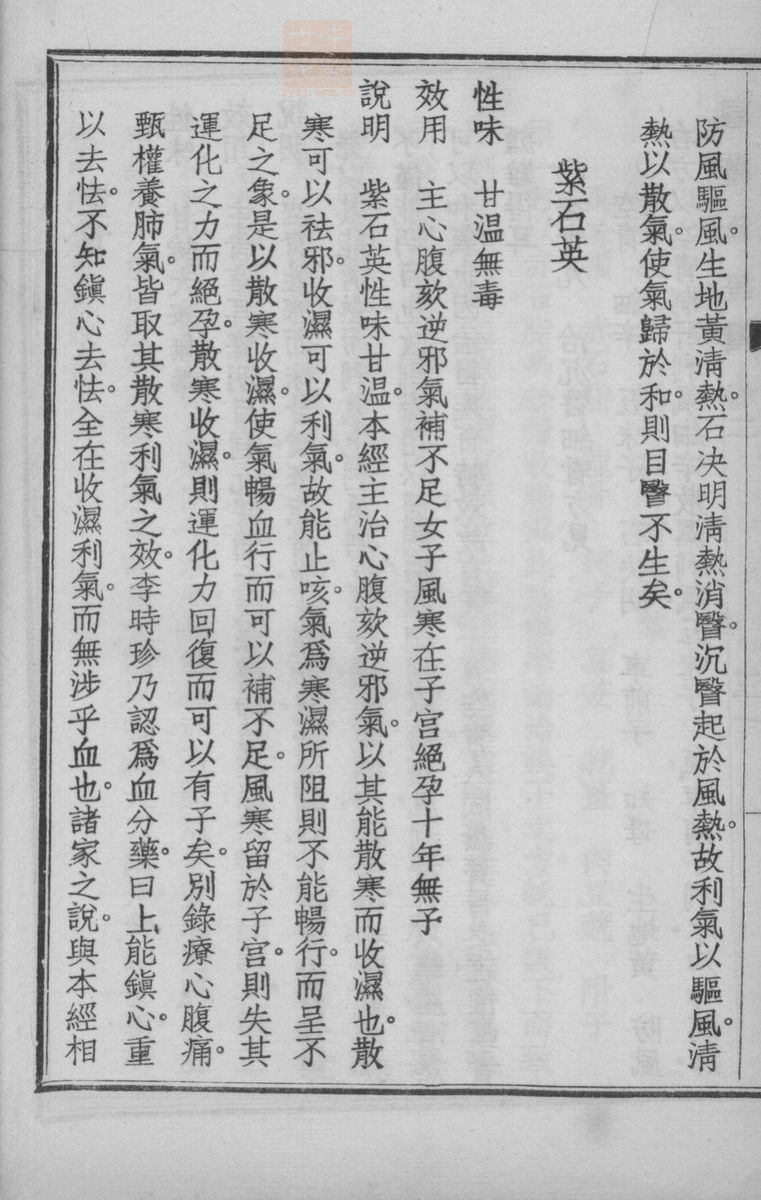 防風驅風。生地黃淸熱。石決明淸熱消瞖。沉瞖起於風熱。故利氣以驅風。淸
熱以散氣。使氣歸於和。則目瞖不生矣。
紫石英
性味　甘温無毒
效用　主心腹欬逆邪氣補不足女子風寒在子宮絕孕十年無子
說明　紫石英性味甘温。本經主治心腹欬逆邪氣。以其能散寒而收濕也。散
寒可以祛邪。收濕可以利氣。故能止咳。氣爲寒濕所阻則不能暢行。而呈不
足之象。是以散寒收濕。使氣暢血行而可以補不足。風寒留於子宮。則失其
運化之力而絕孕。散寒收濕。則運化力回復而可以有子矣。別錄療心腹痛。
甄權養肺氣。皆取其散寒利氣之效。李時珍乃認爲血分藥。曰上能鎭心。重
以去怯。不知鎭心去怯。全在收濕利氣。而無涉乎血也。諸家之說。與本經相